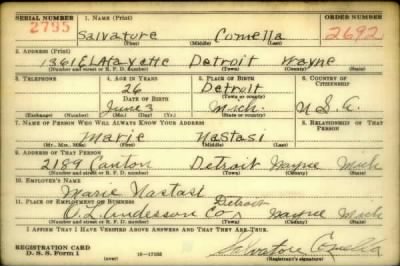 SERIAL NUMBER 1. NAME (Print) ORDER NUMBER
2755 Salvatore Comella 2692
(First) (Middle) (Last)
2. ADDRESS (Print)
1361 E LAfayette Detroit Wayne
(Number and street or R. F. D. number) (Town) (County) (State)
3. TELEPHONE 4. AGE IN YEARS 5. PLACE OF BIRTH 6. COUNTRY OF CITIZENSHIP
26 Detroit
DATE OF BIRTH (Town or county)
June 3 Mich. U S. A.
(Exchange) (Number) (Mo.) (Day) (Yr.) (State or country)
7. NAME OF PERSON WHO WILL ALWAYS KNOW YOUR ADDRESS 8. RELATIONSHIP OF THAT PERSON
Marie Nastasi
(Mr., Mrs., Miss) (First) (Middle) (Last)
9. ADDRESS OF THAT PERSON
2189 Canton Detroit Wayne Mich
(Number and street or R. F. D. number) (Town) (County) (State)
10. EMPLOYER'S NAME
Marie Nastasi
11. PLACE OF EMPLOYMENT OR BUSINESS Detroit
O. L. Andersson Co Wayne Mich
(Number and street or R. F. D. number) (Town) (County) (State)
I AFFIRM THAT I HAVE VERIFIED ABOVE ANSWERS AND THAT THEY ARE TRUE.
REGISTRATION CARD
D. S. S. Form 1 (over) 16-17105 Salvatore Comella
(Registrant's signature)